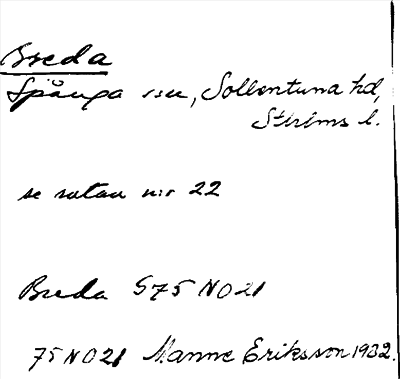 Breda
Spånga sn, Sollentuna hd,
Sthlms l.
se rutan nr 22
Breda S75NO21
75NO21 Manne Eriksson 1932.